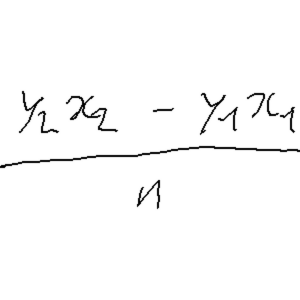 \frac{y_2 x_2 - y_1 x_1}{n}